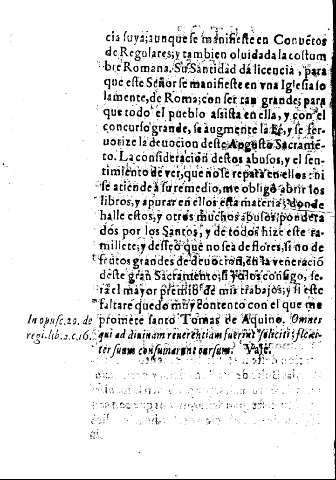 cia suya; aunque se manifieste en Conuẽtos
de Regulares, y tambien oluidada la costum
bre Romana. Su Santidad dà licencia, para
que este Señor se manifieste en vna Iglesia so
lamente, de Roma; con ser tan grande; para
que todo el pueblo asista en ella, y con el
concurso grande, se augmente la Fè, y se fer-
uorize la deuocion deste Augusto Sacramẽ-
to. La consideracion destos abusos, y el sen-
timiento de ver, que no se repara en ellos: ni
se atiende à su remedio, me obligò abrir los
libros, y apurar en ellos esta materia; donde
halle estos, y otros muchos abusos, pondera
dos por los Santos, y de todos hize este ra-
millete; y desseo que no sea de flores, si no de
frutos grandes de deuocion, en la veneraciõ
deste gran Sacramento, si yo los consigo, se-
rà el mayor premio de mis trabajos; y si este
faltare quedo muy contento con el que me
promete santo Tomas de Aquino. Omnes
qui ad diuinam reuerentiam fuerint soliciti; felici-
ter suum consumarunt cursum. Vale.
In opusc. 20. de
regi. lib. 2. c. 16.